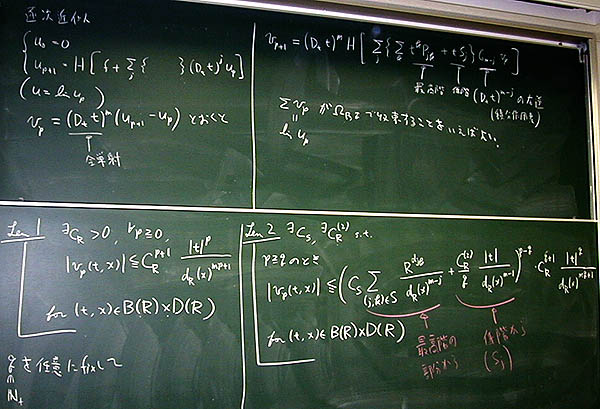 逐次近似
u₀ = 0
u_{p+1} = H[f + Σ_j {   }(D_t t)^j u_p]
(u = lim u_p)
v_p = (D_t t)^m (u_{p+1} − u_p) とおくと
全単射
v_{p+1} = (D_t t)^m H[Σ_j {Σ t P + t S_j} v_p]
最高階 低階 (D_t t)^{m-j} の
Σ v_p が Ω まで収束することをいえばよい.
lim u_p
Lem 1 ∃C_R > 0, ∀p ≧ 0,
|v_p(t,x)| ≦ C_R^{p+1} |t|^p / d_R(x)^{mp+1}
for (t,x) ∈ B(R) × D(R)
q を任意に fix して
∈ ℕ₊
Lem 2 ∃C_S, ∃C_R^{(2)} s.t.
p ≧ q のとき
|v_p(t,x)| ≦ (C_S Σ_{(j,α)∈S} R / d_R(x)^{m-j} + C_R^{(2)}/q |t| / d_R(x)^{m-1})^{p-q} · C_R^{q+1} |t|^q / d_R(x)^{mq+1}
for (t,x) ∈ B(R) × D(R)
最高階の部分から
低階から (S_j)